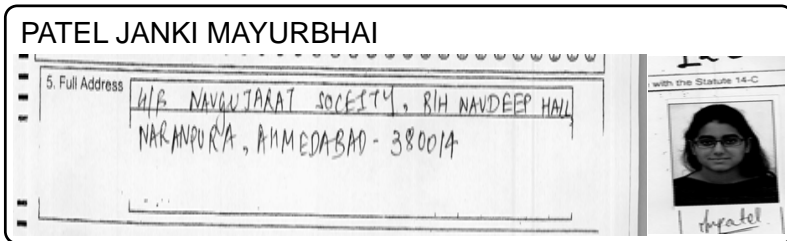 PATEL JANKI MAYURBHAI
5. Full Address
4/B NAVGUJARAT SOCEITY, B/H NAVDEEP HALL
NARANPURA, AHMEDABAD - 380014
with the Statute 14-C